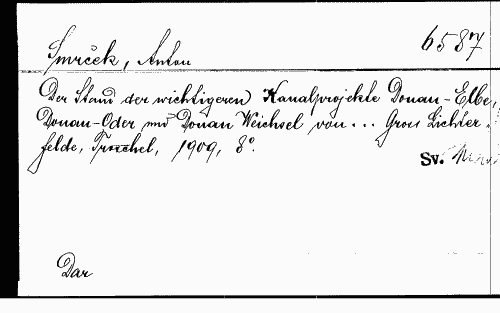 6587
Smrček, Anton
Der Stand der wichtigeren Kanalprojekte Donau-Elbe,
Donau-Oder und Donau Weichsel von... Gross Lichter-
felde, 1909, 8°.
Sv.
Dar